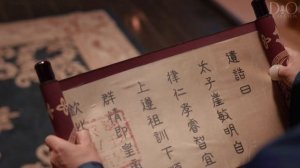 遺詔曰
太子崖敏明自
律仁孝睿智宜
上遵祖訓下
群情即皇
欽